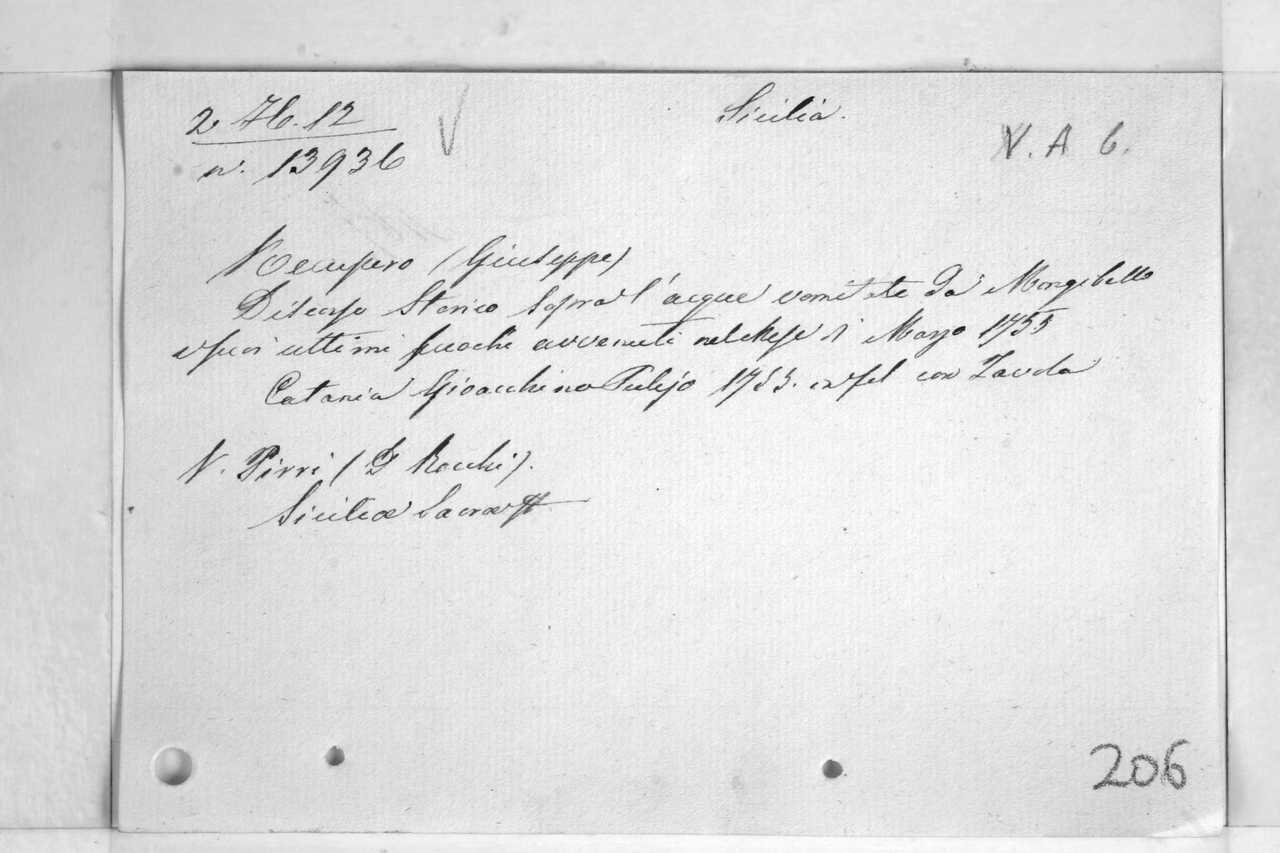 2 Ab. 12
Sicilia.
n. 13936
V. A 6.
Recupero (Giuseppe)
Discorso Storico sopra l'acque vomitate da Mongibello
e suoi ultimi fuochi avvenuti nel Mese di Marzo 1755
Catania Gioacchino Pulejo 1755. in fol con Tavola
V. Pirri (D Rocchi).
Siciliæ Sacræ
206